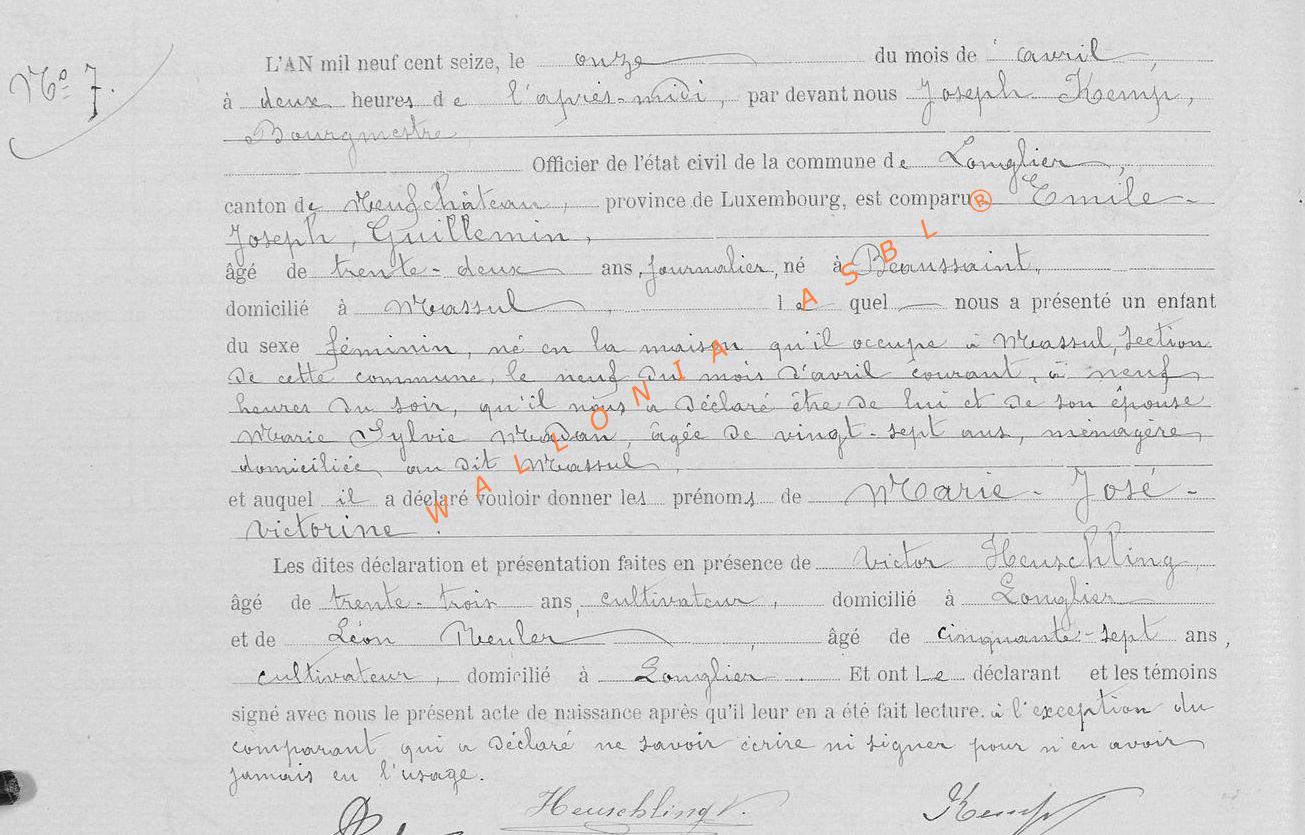 N° 7.
L'AN mil neuf cent seize, le onze du mois de avril,
à deux heures de l'après-midi, par devant nous Joseph Kemp,
Bourgmestre
Officier de l'état civil de la commune de Longlier,
canton de Neufchâteau, province de Luxembourg, est comparu Emile-
Joseph, Guillemin,
âgé de trente-deux ans, journalier, né à Beaussaint,
domicilié à Massul, lequel nous a présenté un enfant
du sexe féminin, né en la maison qu'il occupe à Massul, section
de cette commune, le neuf du mois d'avril courant, à neuf
heures du soir, qu'il nous a déclaré être de lui et de son épouse
Marie Sylvie, âgée de vingt-sept ans, ménagère,
domiciliée au dit Massul,
et auquel il a déclaré vouloir donner les prénoms de Marie-José-
Victorine.
Les dites déclaration et présentation faites en présence de Victor Heuschling,
âgé de trente-trois ans, cultivateur, domicilié à Longlier
et de Léon, âgé de cinquante-sept ans,
cultivateur, domicilié à Longlier. Et ont Le déclarant et les témoins
signé avec nous le présent acte de naissance après qu'il leur en a été fait lecture. à l'exception du
comparant qui a déclaré ne savoir écrire ni signer pour n'en avoir
jamais eu l'usage.
Heuschling V. Kemp
WALLONIA ASBL ®